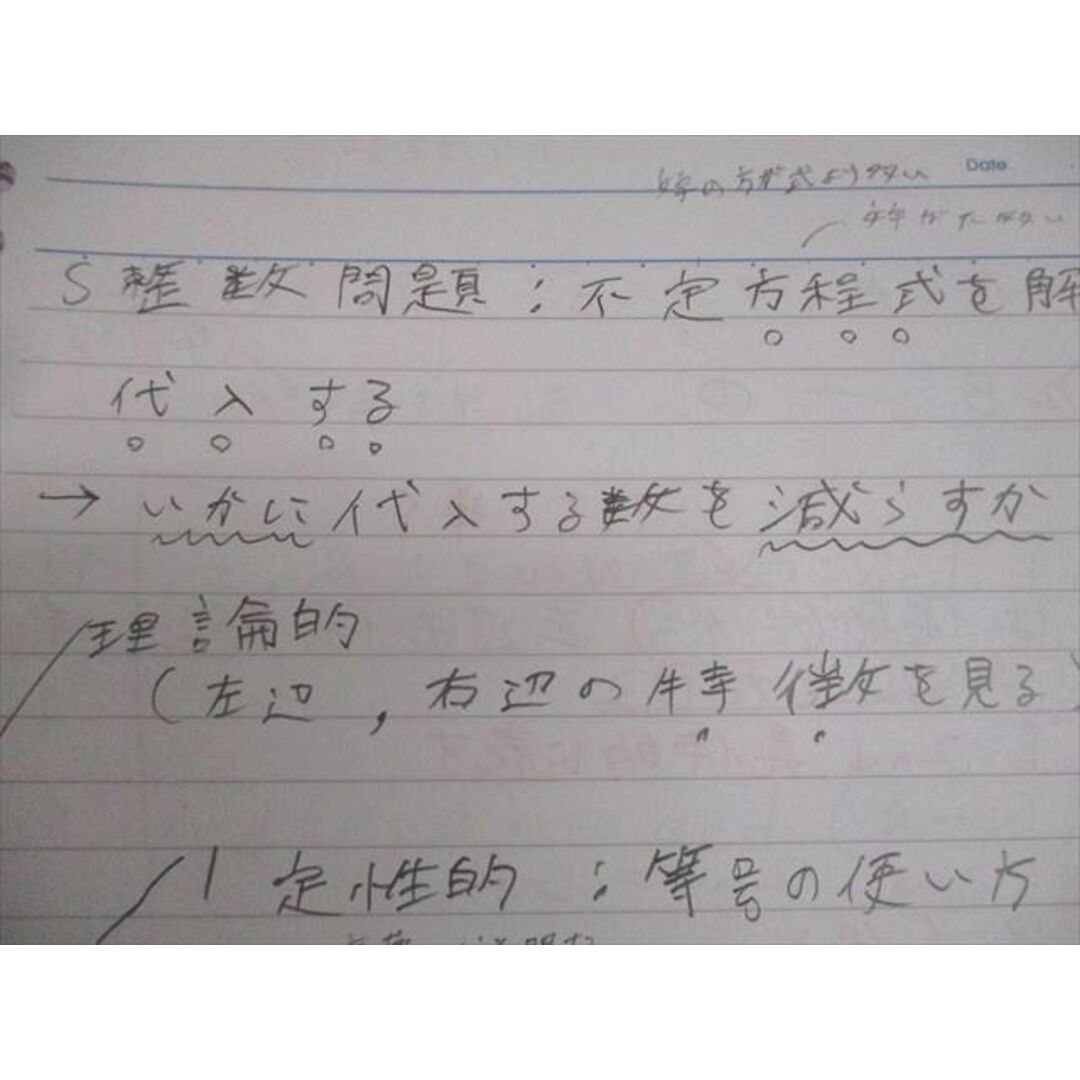 Date
の方が式より多い
S 整数問題：不定方程式を解
代入する
→ いかに代入する数を減らすか
理論的
(左辺，右辺の特徴を見る)
1 定性的：等号の使い方